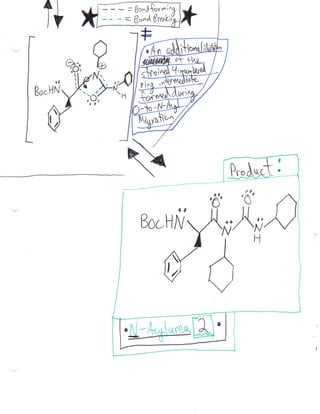 = Bond forming
= Bond Breaking
‡
• An additional illustration
of the
strained 4-membered
ring intermediate
formed during
O-to-N-Acyl
Migration
⊖
⊕
O
N
BocHN
O
N
H
Product:
O
O
BocHN
N
N
H
• N-Acylurea 2 •